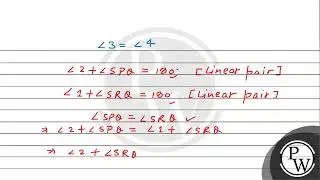 ∠3 = ∠4
∠2 + ∠SPQ = 180° [Linear pair]
∠1 + ∠SRQ = 180° [Linear pair]
∠SPQ = ∠SRQ ✓
⇒ ∠2 + ∠SPQ = ∠1 + ∠SRQ
⇒ ∠2 + ∠SRQ
PW